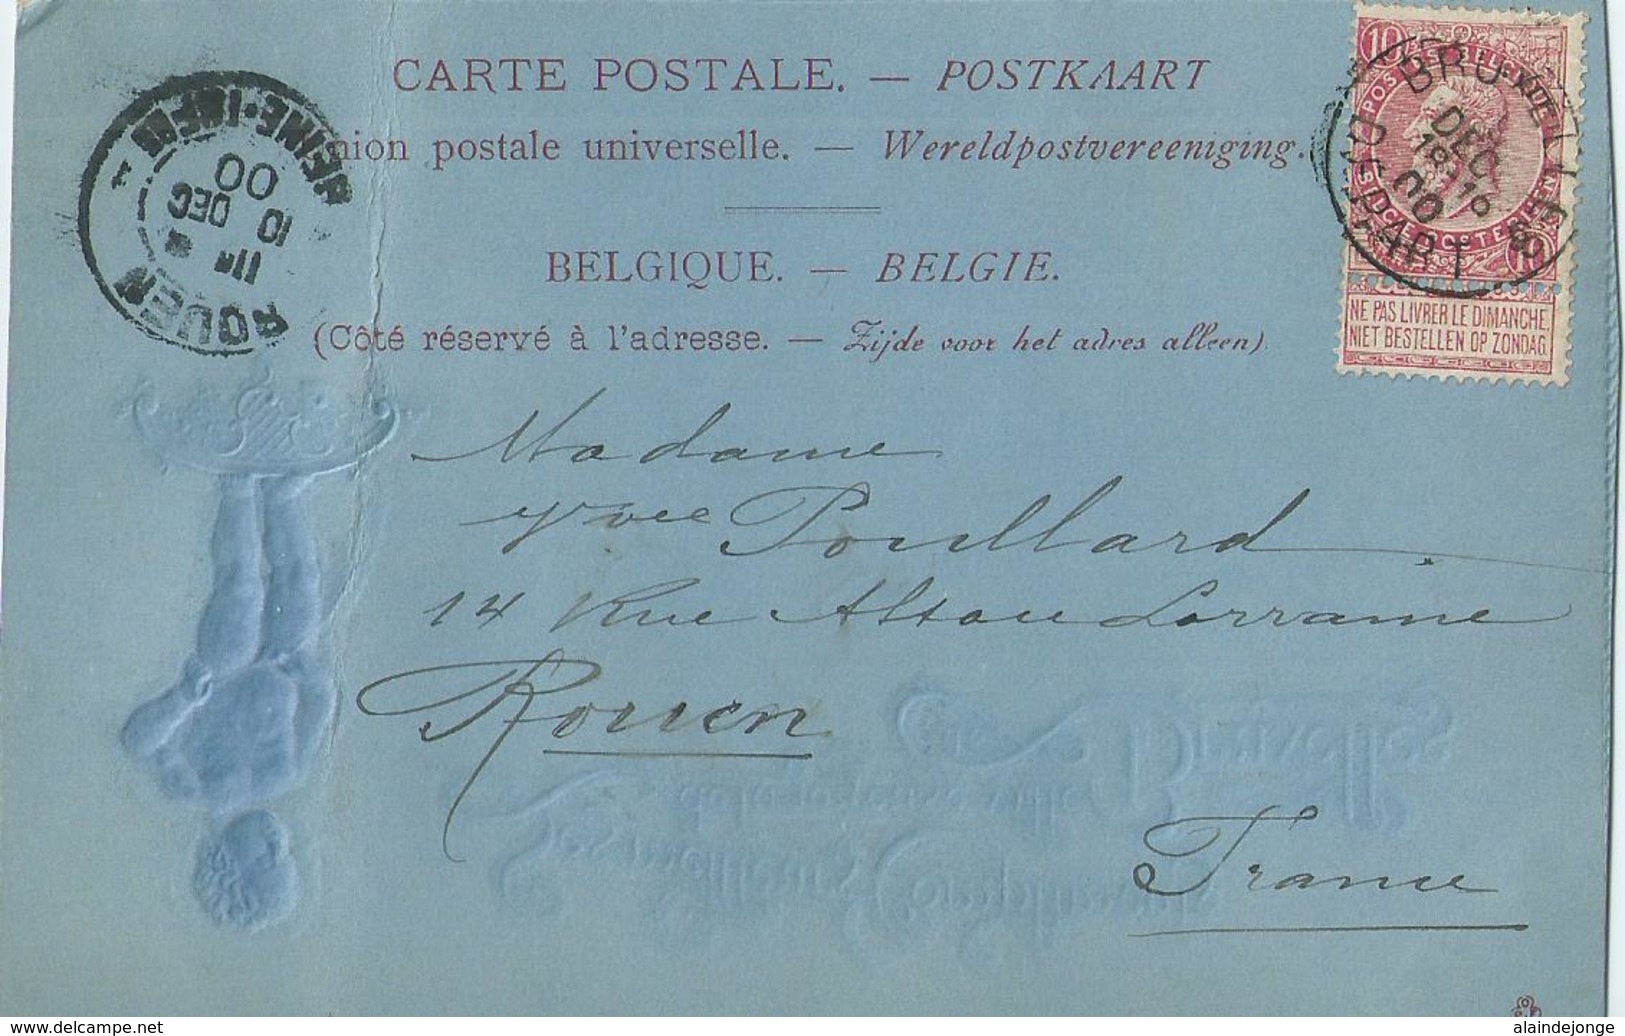 CARTE POSTALE. — POSTKAART
Union postale universelle. — Wereldpostvereeniging.
BELGIQUE. — BELGIE.
(Côté réservé à l'adresse. — Zijde voor het adres alleen).
10
10
NE PAS LIVRER LE DIMANCHE
NIET BESTELLEN OP ZONDAG
DEPART
DEC
00
ROUEN
10 DEC
00
Madame
Yvee Poullard
14 Rue Alsace Lorraine
Rouen
France
www.delcampe.net
alaindejonge